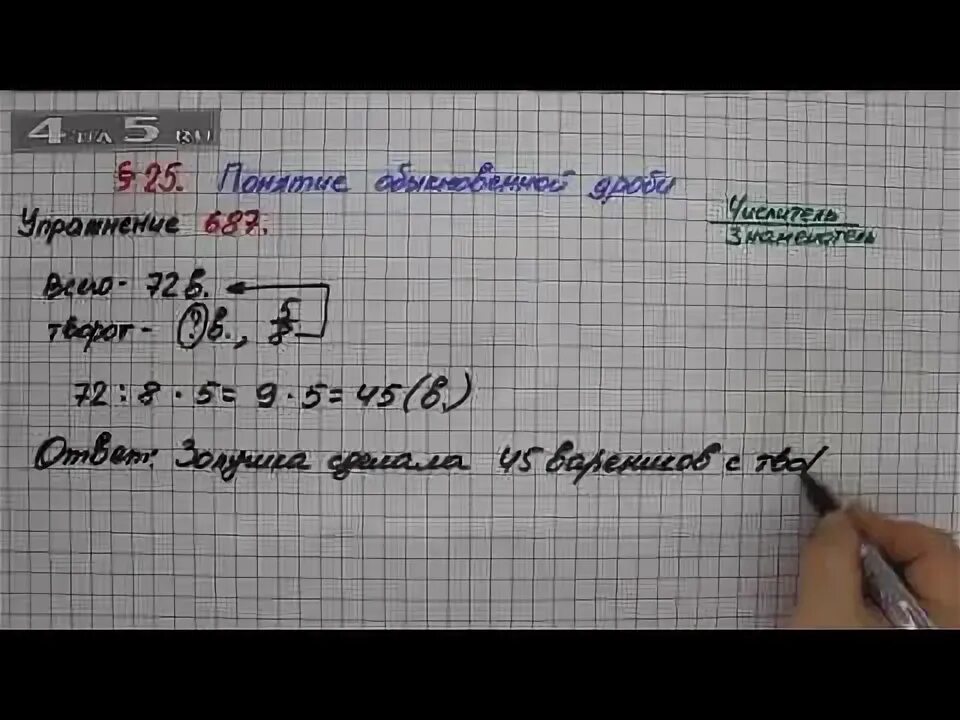 4 НА 5 RU
§ 25. Понятие обыкновенной дроби
Упражнение 687.
Числитель
Знаменатель
Всего - 72 в.
творог - ? в., 5/8
72 : 8 · 5 = 9 · 5 = 45 (в.)
Ответ: Золушка сделала 45 вареников с тво